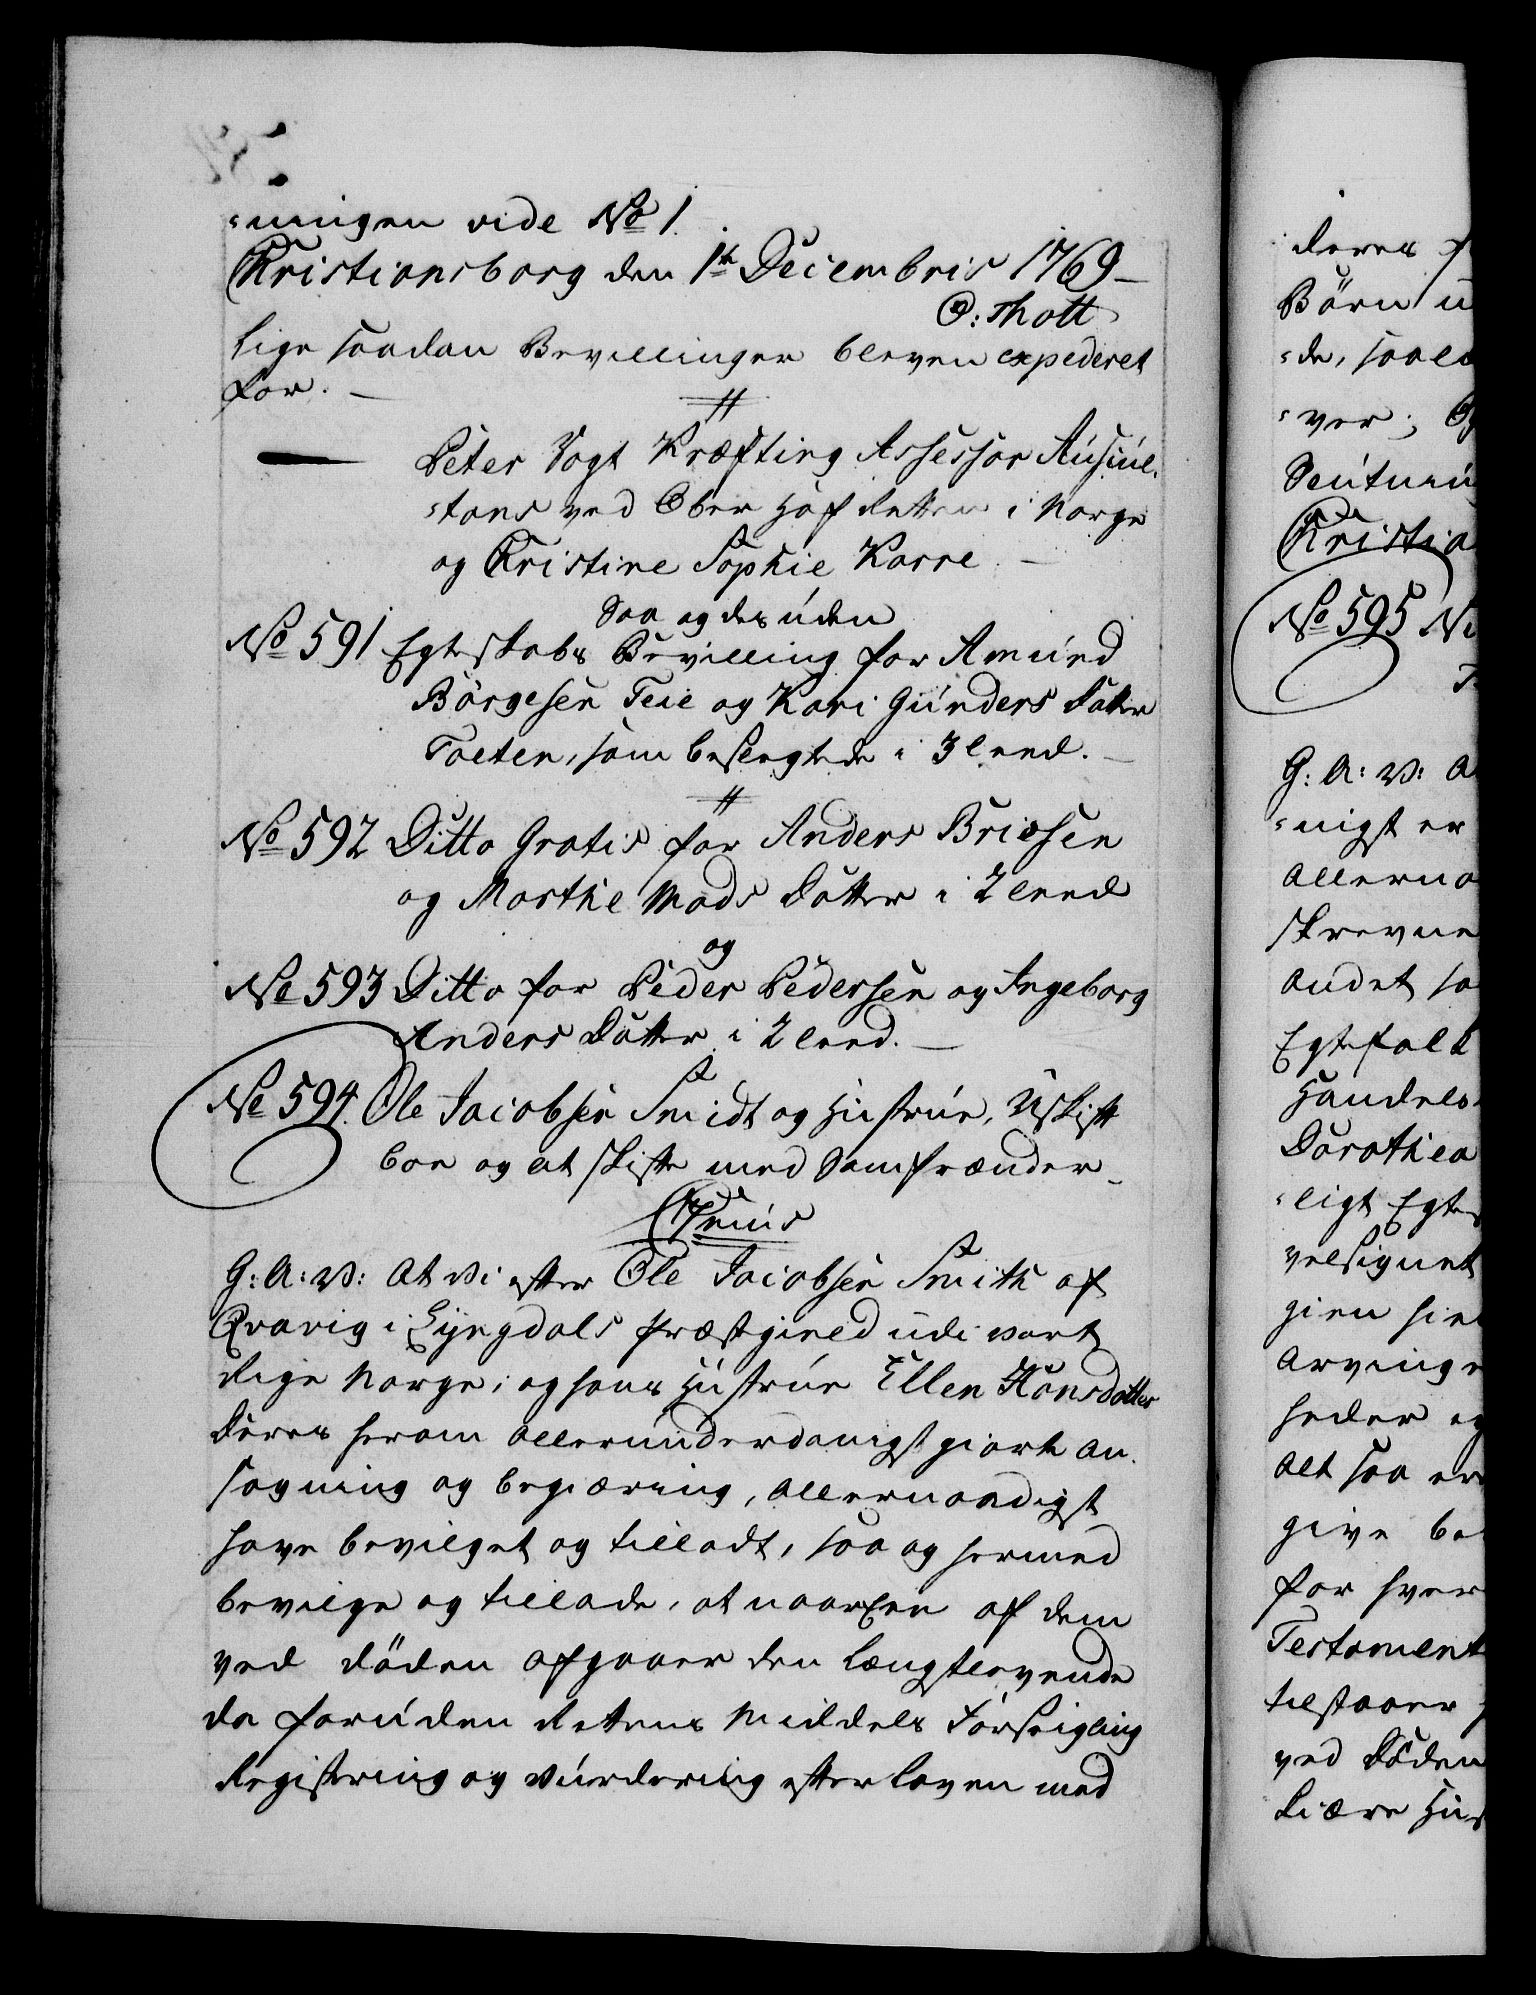 -ningen vide No 1.
Kristiansborg den 1te Decembris 1769
O: Thott
Lige saadan Bevillinger bleven expederet
for.
Peter Vogt Kræfting Assessor Auscul-
-tans ved Ober Hof Retten i Norge
og Kristine Sophie Karre
Saa og desuden
No 591 Egteskabs Bevilling for Amund
Börgesen Teie og Kari Gunders Datter
Toeten, som beslegtede i 3 leed.
No 592 Ditto Gratis for Anders Briesen
og Marthe Mads Datter i 2 leed
og
No 593 Ditto for Peder Pedersen og Ingeborg
Anders Datter i 2 leed.
No 594. Ole Jacobsen Smidt og Hustrue, Uskift
boe og at skifte med Samfrænder
Genus
G: A: V: At vi efter Ole Jacobsen Smith af
Qvavig i Lyngdals Præstegield udi vort
Rige Norge, og hans Hustrue Ellen Hansdatter
Deres herom allerunderdanigst giorte An-
søgning og begiæring, allernaadigst
have bevilget og tilladt, saa og hermed
bevilge og tillade, at naar Een af dem
ved döden afgaaer den længstlevende
da foruden Rettens Middels Forseigling
Registering og Vurdering efter loven med
deres
Börn u
-de, saale
-ver; O
Kristia
No 595 Ni
G: A: V: A
-nigst er
Allerna
skrevne
andet sa
Egtefolk
Handels
Dorothea
-ligt Egte
velsignet
gien
Arvinge
heder og
alt saa er
give be
for hver
Testament
tilstaaer
ved Döden
kiære Hus